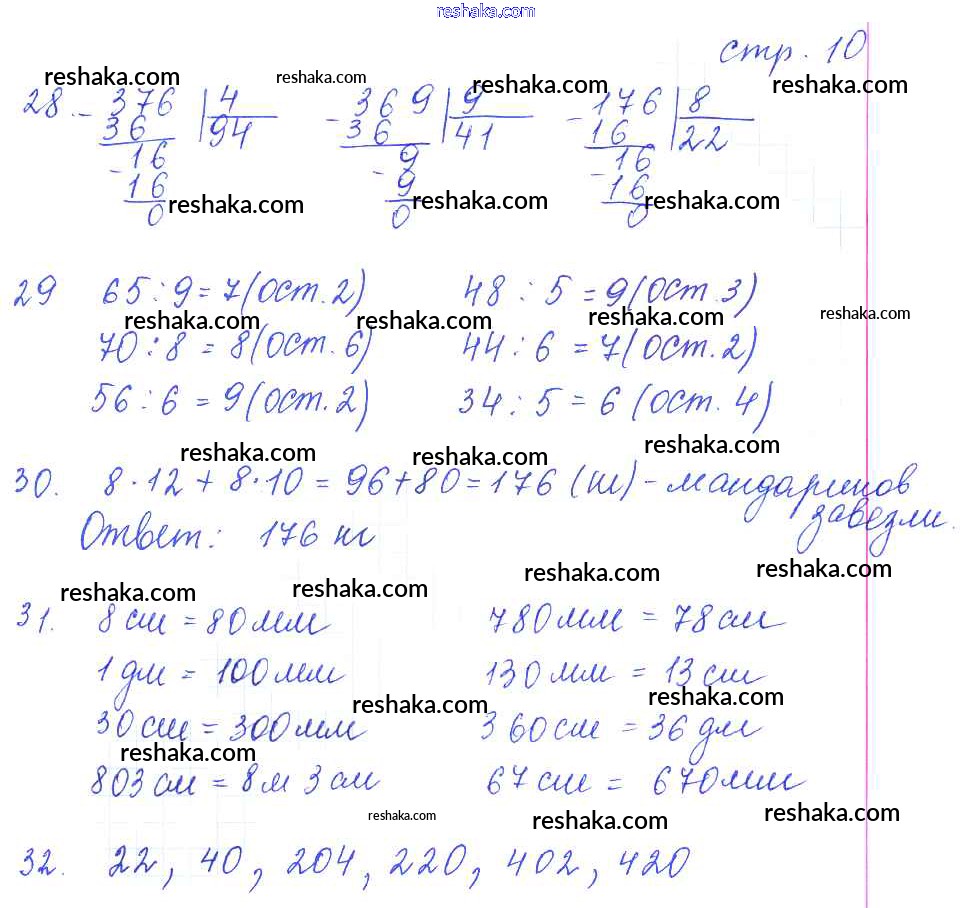 reshaka.com
стр. 10
reshaka.com reshaka.com reshaka.com reshaka.com
28. - 376 | 4 - 369 | 9 - 176 | 8
36 | 94 36 | 41 16 | 22
- 16 - 9 - 16
16 9 16
0 reshaka.com 0 reshaka.com 0 reshaka.com
29 65 : 9 = 7 (ост. 2) 48 : 5 = 9 (ост. 3)
reshaka.com reshaka.com reshaka.com reshaka.com
70 : 8 = 8 (ост. 6) 44 : 6 = 7 (ост. 2)
56 : 6 = 9 (ост. 2) 34 : 5 = 6 (ост. 4)
reshaka.com reshaka.com reshaka.com
30. 8 · 12 + 8 · 10 = 96 + 80 = 176 (кг) - мандаринов
завезли.
Ответ: 176 кг
reshaka.com reshaka.com reshaka.com reshaka.com
31. 8 см = 80 мм 780 мм = 78 см
1 дм = 100 мм 130 мм = 13 см
reshaka.com reshaka.com
30 см = 300 мм 360 см = 36 дм
reshaka.com
803 см = 8 м 3 см 67 см = 670 мм
reshaka.com reshaka.com reshaka.com
32. 22, 40, 204, 220, 402, 420